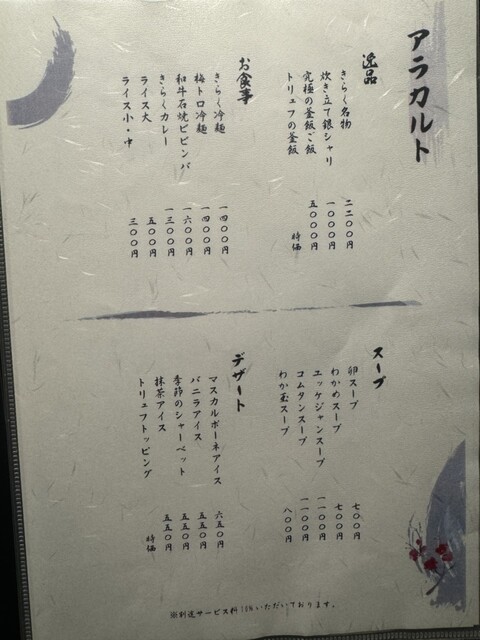 アラカルト
逸品
きらく名物 二二〇〇円
炊き立て銀シャリ 一〇〇〇円
究極の釜飯ご飯 五〇〇〇円
トリュフの釜飯 時価
お食事
きらく冷麺 一四〇〇円
梅トロ冷麺 一四〇〇円
和牛石焼ビビンバ 一六〇〇円
きらくカレー 一三〇〇円
ライス大 五〇〇円
ライス小・中 三〇〇円
スープ
卵スープ 七〇〇円
わかめスープ 七〇〇円
エッケジャンスープ 一一〇〇円
コムタンスープ 一一〇〇円
わか玉スープ 八〇〇円
デザート
マスカルポーネアイス 六五〇円
バニラアイス 五五〇円
季節のシャーベット 五五〇円
抹茶アイス 五五〇円
トリュフトッピング 時価
※別途サービス料10%いただいております。